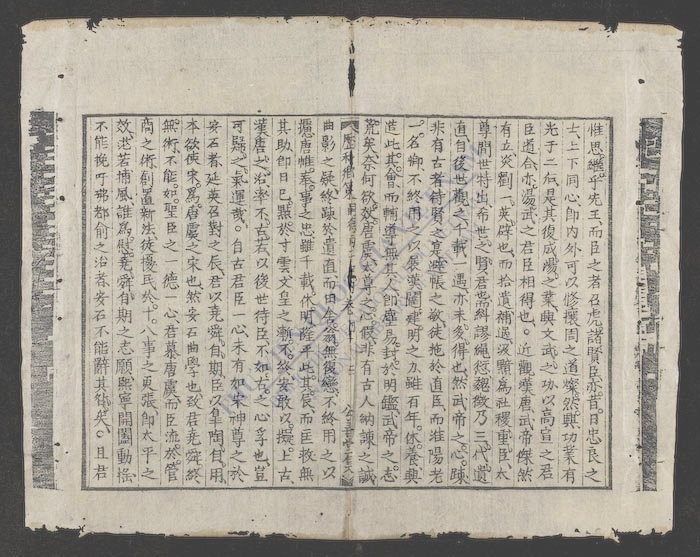 惟思繼乎先王而臣之者召虎諸賢臣亦昔日忠良之
士上下同心卽內外可以修攘間之道燦然興功業有
光于二后是其復成康之業與文武之功以高宣之君
臣道合亦湯武之君臣相得也近觀漢唐武帝傑然
有立炎劉一英辟也而拾遺補過汲黯爲社稷重臣太
尊間世特出希世之賢君耑糾謬繩愆超徵乃三代遺
直自後世觀之千載一遇亦未多得也然武帝之心疎
非有古者待賢之享帳之敬徒拖於直臣而淮陽老
一名卿不終用之以裴漢圖建明之力雖百年休養興
造此其會而輔道無其人卽塵易封於明鑑武帝之志
荒矣奈何欲效唐虞太尊之心假非有古人納諫之誠
曲影之疑終踈於遺直而田舍翁無復戀不終用之以
攄唐帷奉事之忠雖千載休明隆平此其辰而匡救無
其助卽日已點於寸雲文皇之漸不終安敢以擬上古
漢唐之治率不古若以後世待臣不如古之心孚也豈
可歸之氣運哉自古君臣一心未有如宋神尊之於
安石者延英召對之辰君以堯舜自期臣以皐陶自用
本欲使宋爲唐虞之宋也然安石曲學也致君堯舜終
無術不能如聖臣之一德一心君慕唐虞而臣流於管
商之術創置新法徒擾民於十八事之更張卽太平之
效求若捕風誰爲慰堯舜自期之志願熙寧開闔動搖
不能挽吁咈都俞之治者安石不能辭其咎矣且君